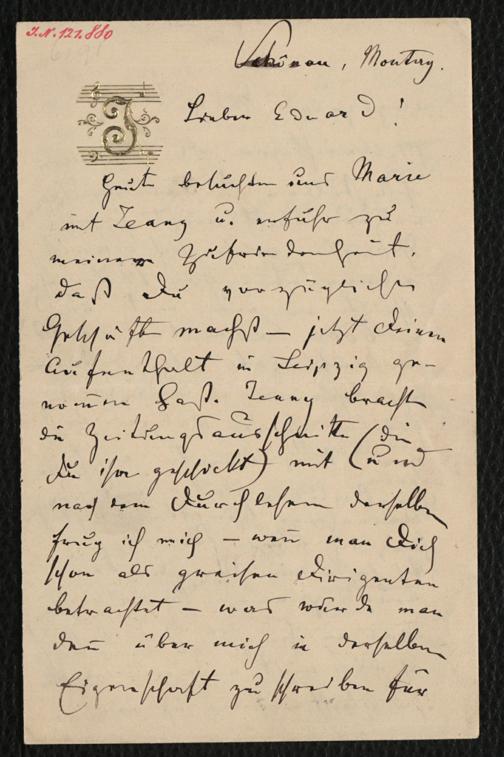 J.N. 121.880
Schönau, Montag.
Lieber Eduard!
Heute besuchten uns Marie
mit Jeany u. erfuhr zu
meiner Zufriedenheit,
daß Du vorzügliche
Geschäfte machst – jetzt Deinen
Aufenthalt in Leipzig ge-
nommen hast. Jeany brachte
die Zeitungsausschnitte (die
Du ihr geschickt) mit (und
nach dem Durchlesen derselben
frug ich mich – wenn man Dich
schon als greisen Dirigenten
betrachtet – was würde man
denn über mich in derselben
Eigenschaft zu schreiben für